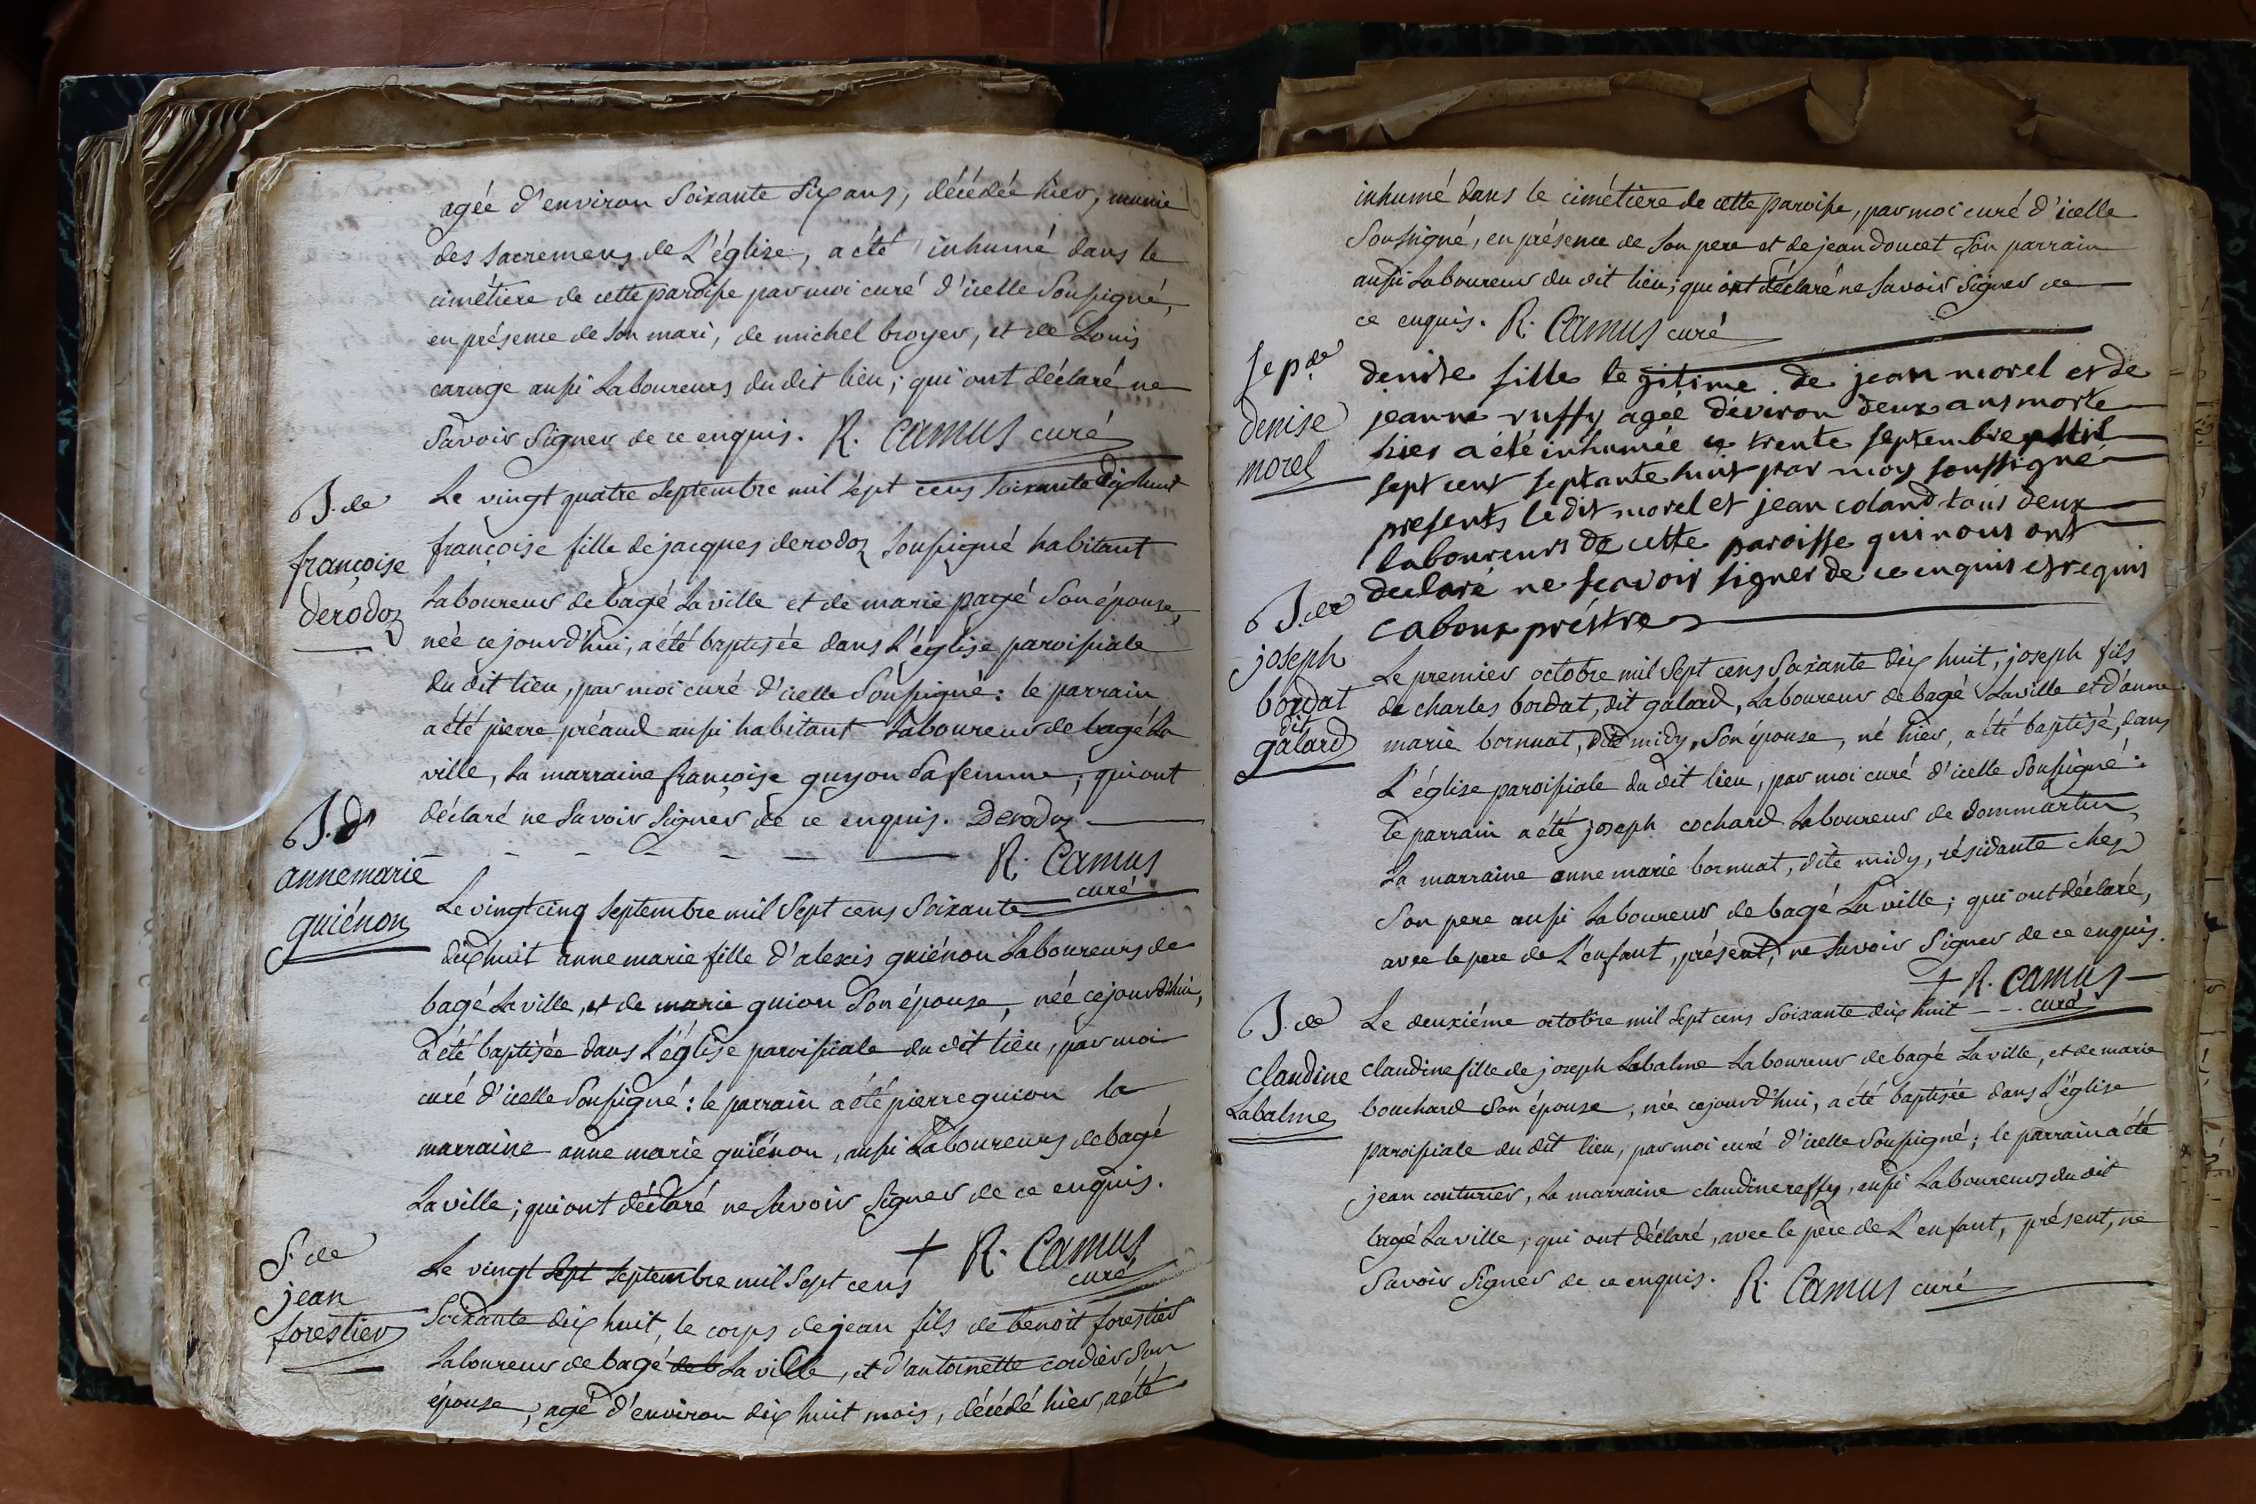 agée d'environ Soixante Six ans, décédée hier, munie
des sacremens de L'église, a été inhumé dans le
cimétiere de cette paroisse par moi curé d'icelle Soussigné,
en présence de Son mari, de michel broyer, et de Louis
caruge aussi Laboureurs du dit lieu; qui ont déclaré ne
Savoir Signer de ce enquis. R. Camus curé
B. de
françoise
derodoz
Le vingt quatre Septembre mil Sept cens Soixante dix huit
françoise fille de jacques derodoz Soussigné habitant
Laboureur de bagé La ville et de marie pagé Son épouse,
née ce jourd'hui, a été baptisée dans L'église paroissiale
du dit lieu, par moi curé d'icelle Soussigné: le parrain
a été pierre préaud aussi habitant Laboureur de bagé La
ville, La marraine françoise guyon Sa femme, qui ont
déclaré ne Savoir Signer de ce enquis. Derodoz
R. Camus
curé
B. d'
annemarie
guiénon
Le vingt cinq Septembre mil Sept cens Soixante
dix huit anne marie fille d'alexis guiénon Laboureurs de
bagé La ville, et de marie guion Son épouse, née ce jourd'hui,
a été baptisée dans L'église paroissiale du dit lieu, par moi
curé d'icelle Soussigné: le parrain a été pierre guion la
marraine anne marie guiénon, aussi Laboureurs de bagé
La ville; qui ont déclaré ne Savoir Signer de ce enquis.
+ R. Camus
curé
S. de
jean
forestier
Le vingt Sept Septembre mil Sept cens
Soixante dix huit, le corps de jean fils de benoit forestier
Laboureur de bagé de b La ville, et d'antoinette cordier Son
épouse, agé d'environ dix huit mois, décédé hier, a été
inhumé dans le cimétiere de cette paroisse, par moi curé d'icelle
Soussigné, en présence de Son pere et de jean doucet Son parrain
aussi Laboureur du dit lieu; qui ont déclaré ne Savoir Signer de
ce enquis. R. Camus curé
Sep. de
denise
morel
denise fille legitime de jean morel et de
jeanne ruffy agée d'eviron deux ans morte
hier a été inhumée ce trente septembre mil
sept cent septante huit par moy soussigné
presents ledit morel et jean coland tous deux
laboureurs de cette paroisse qui nous ont
declaré ne scavoir signer de ce enquis et requis
caboux préstre
B. de
joseph
bordat
dit
galard
Le premier octobre mil Sept cens Soixante dix huit, joseph fils
de charles bordat, dit galard, Laboureur de bagé La ville et d'anne
marie bornuat, dite midy, Son épouse, né hier, a été baptisé, dans
L'église paroissiale du dit lieu, par moi curé d'icelle Soussigné:
le parrain a été joseph cochard Laboureur de dommartin,
La marraine anne marie bornuat, dite midy, résidante chez
Son pere aussi Laboureur de bagé La ville; qui ont déclaré,
avec le pere de L'enfant, présent, ne Savoir Signer de ce enquis.
+ R. Camus
curé
B. de
claudine
Labalme
Le deuxiéme octobre mil Sept cens Soixante dix huit
claudine fille de joseph Labalme Laboureur de bagé La ville, et de marie
bouchard Son épouse, née ce jourd'hui, a été baptisée dans L'église
paroissiale du dit lieu, par moi curé d'icelle Soussigné; le parrain a été
jean couturier, La marraine claudine reffy, aussi Laboureurs du dit
bagé La ville, qui ont déclaré, avec le pere de L'enfant, présent, ne
Savoir Signer de ce enquis. R. Camus curé